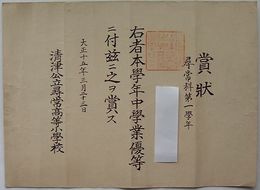 賞狀
尋常科第一學年
右者本學年中學業優等
ニ付玆ニ之ヲ賞ス
大正十五年三月二十三日
清津公立尋常高等小學校